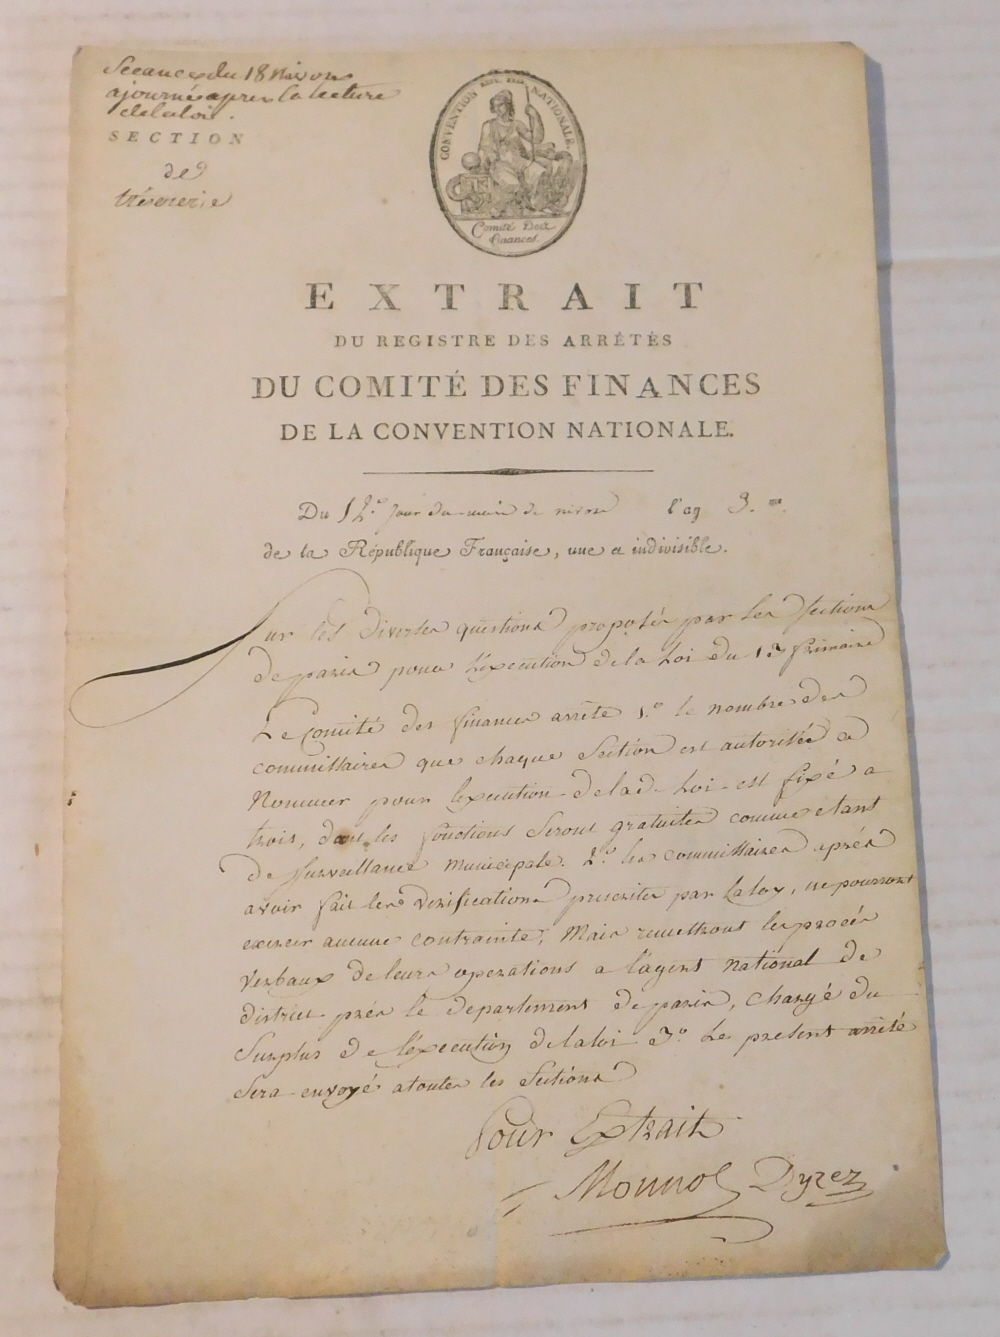 Seeance du 18 Nivose
ajournée apres la lecture
de la loi.
SECTION
de
trésorerie
CONVENTION NATIONALE.
Comité Des
finances.
EXTRAIT
DU REGISTRE DES ARRÊTÉS
DU COMITÉ DES FINANCES
DE LA CONVENTION NATIONALE.
Du 12.e jour du mois de nivose l'an 3.me
de la République Française, une et indivisible.
Sur les diverses questions proposées par les Sections
de paris pour l'execution de la Loi du 13 frimaire
Le Comité des finances arrête 1.o le nombre des
commissaires que chaque Section est autorisée a
Nommer pour l'execution de lad. Loi est fixé a
trois, dont les fonctions seront gratuites comme etant
de surveillance municipale. 2.o les commissaires après
avoir fait les vérifications prescrites par la loy, ne pourront
exercer aucune contrainte; Mais remettront les procès
Verbaux de leurs operations a l'agent National de
district près le departement de paris, chargé du
Surplus de l'execution de la loi 3.o Le present arrêté
Sera envoyé a toutes les Sections
Pour Extrait
Monnot Dyzez